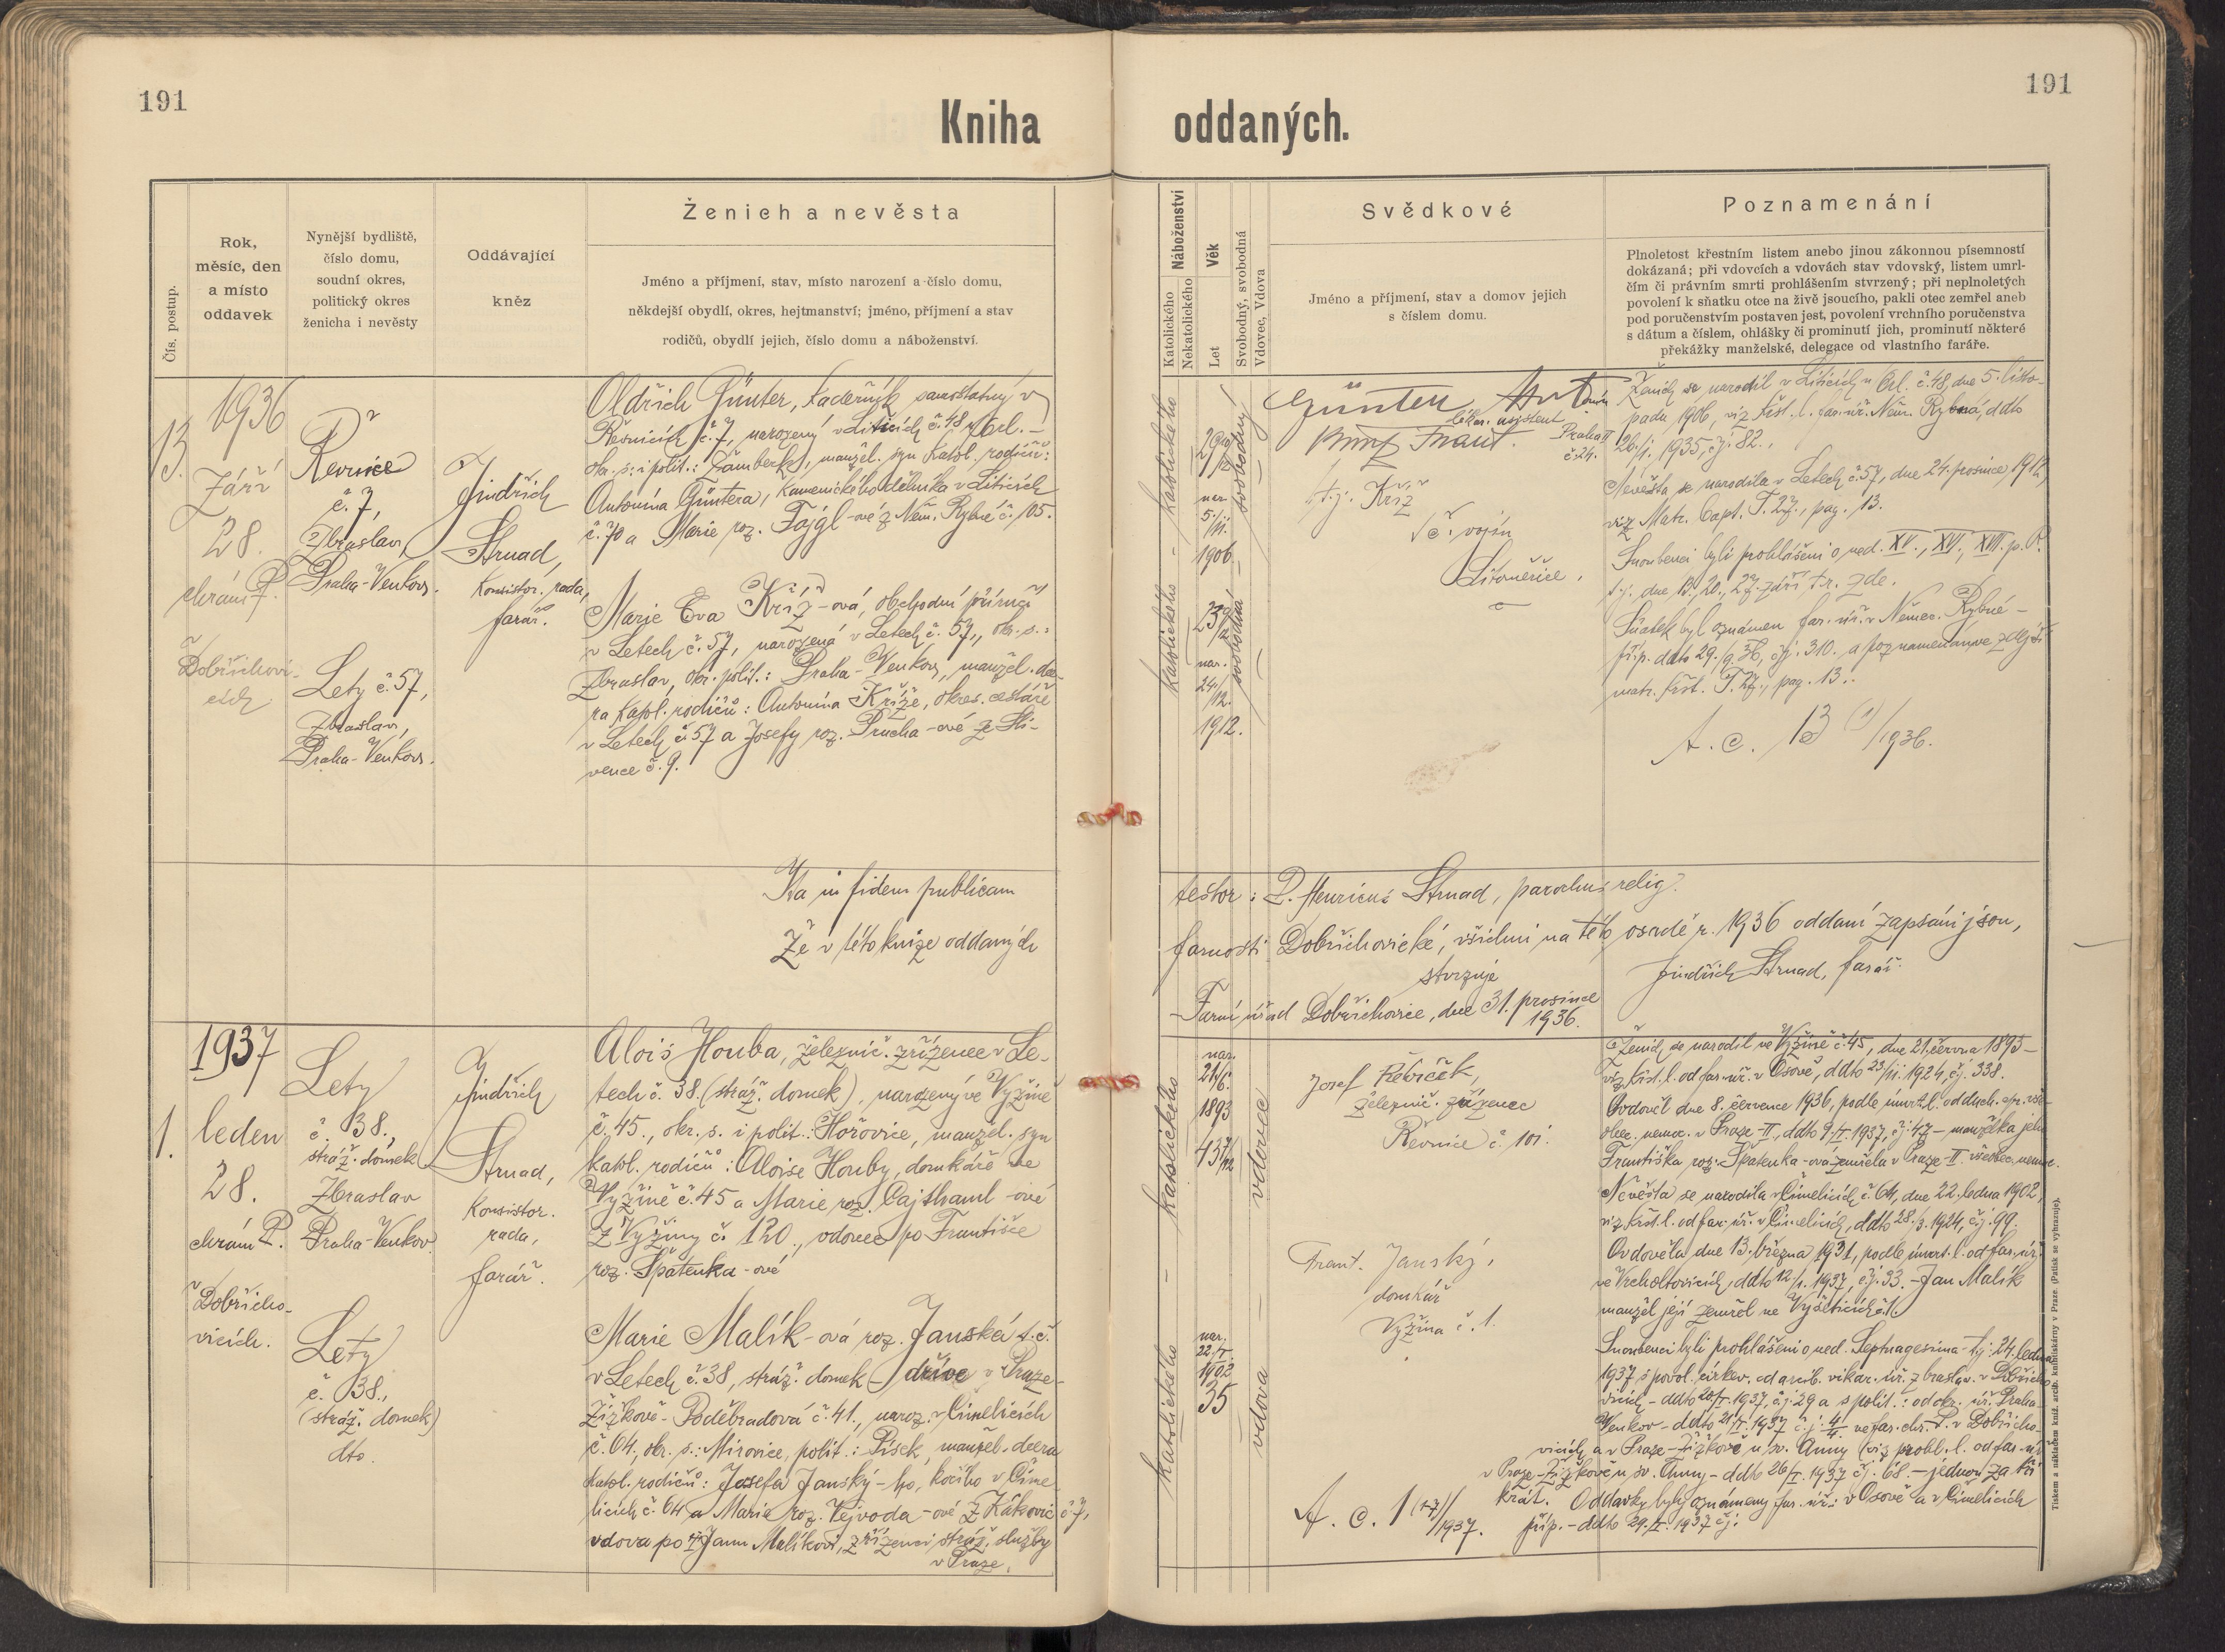 191
191
Kniha oddaných.
Čís. postup.
Rok,
měsíc, den
a místo
oddavek
Nynější bydliště,
číslo domu,
soudní okres,
politický okres
ženicha i nevěsty
Oddávající
kněz
Ženich a nevěsta
Jméno a příjmení, stav, místo narození a číslo domu,
někdejší obydlí, okres, hejtmanství; jméno, příjmení a stav
rodičů, obydlí jejich, číslo domu a náboženství.
Náboženství
Katolického
Nekatolického
Věk
Let
Svobodný, svobodná
Vdovec, Vdova
Svědkové
Jméno a příjmení, stav a domov jejich
s číslem domu.
Poznamenání
Plnoletost křestním listem anebo jinou zákonnou písemností
dokázaná; při vdovcích a vdovách stav vdovský, listem umrl-
čím či právním smrti prohlášením stvrzený; při neplnoletých
povolení k sňatku otce na živě jsoucího, pakli otec zemřel aneb
pod poručenstvím postaven jest, povolení vrchního poručenstva
s dátum a číslem, ohlášky či prominutí jich, prominutí některé
překážky manželské, delegace od vlastního faráře.
1936
13.
Září
28.
chrám P.
Dobřichovi-
cích
Řevnice
č. 7,
Zbraslav,
Praha-Venkov.
Lety č. 57,
Zbraslav,
Praha-Venkov.
Jindřich
Strnad,
Konsistor. rada,
farář.
Oldřich Günter, kadeřník samostatný v
Řevnicích č. 7, narozený v Liticích č. 48 n/Orl. -
okr. s. i polit.: Žamberk, manžel. syn katol. rodičů:
Antonína Güntera, kamenického dělníka v Liticích
č. 70 a Marie roz. Fajgl-ové z Něm. Rybné č. 105.
Marie Eva Kříž-ová, obchodní příručí
v Letech č. 57, narozená v Letech č. 57, okr. s.:
Zbraslav, okr. polit.: Praha-Venkov, manžel. dce-
ra katol. rodičů: Antonína Kříže, okres. cestáře
v Letech č. 57 a Josefy roz. Průcha-ové ze Sli-
vence č. 9.
katolického - katolického
nar.
5./11.
1906.
nar.
24./12.
1912.
svobodný
svobodná
Günter Antonín
Praha II
č. 24.
t.j. Kříž
č. vojín
Litoměřice.
Ženich se narodil v Liticích n Orl. č. 48, dne 5. listo-
padu 1906, viz křst. l. far. úř. Něm. Rybná, ddto
26./1. 1935, čj. 82.
Nevěsta se narodila v Letech č. 57, dne 24. prosince 1912,
viz Matr. Bapt. T. 27., pag. 13.
Snoubenci byli prohlášeni o ned. XV., XVI., XVII. p. P.
t.j. dne 13., 20., 27. září t. r. zde.
Sňatek byl oznámen far. úř. v Němec. Rybné -
příp. ddto 29./9. 36, čj. 310. a poznamenán ve zdejší
matr. křst. T. 27., pag. 13.
A. c. 13 /1936.
Ita in fidem publicam testor: P. Henricus Strnad, parochus relig.
Že v této knize oddaných farnosti Dobřichovické, všichni na této osadě r. 1936 oddaní zapsáni jsou,
stvrzuje
Jindřich Strnad, farář.
Farní úřad Dobřichovice, dne 31. prosince
1936.
1937
1.
leden
28.
chrám P.
Dobřicho-
vicích.
Lety
č. 38.,
stráž. domek
Zbraslav
Praha-Venkov.
Lety
č. 38.,
(stráž. domek)
dto.
Jindřich
Strnad,
Konsistor.
rada,
farář.
Alois Houba, železnič. zřízenec v Le-
tech č. 38. (stráž. domek), narozený ve Vyžině
č. 45., okr. s. i polit.: Hořovice, manžel. syn
katol. rodičů: Aloise Houby, domkáře ve
Vyžině č. 45 a Marie roz. Cajthaml-ové
z Vyžiny č. 120., vdovec po Františce
roz. Špatenka-ové
Marie Malík-ová roz. Janská t. č.
v Letech č. 38, stráž. domek - dříve v Praze-
Žižkově - Poděbradová č. 41., naroz. v Čimelicích
č. 64., okr. s.: Mirovice, polit.: Písek, manžel. dcera
katol. rodičů: Josefa Janský-ho, kočího v Čime-
licích č. 64 a Marie roz. Vejvoda-ové z Rakovic č. 7,
vdova po Janu Malíkovi, zřízenci stráž. služby
v Praze.
katolického - katolického
nar.
21./6.
1893
nar.
22./I.
1902
35
vdovec
vdova
Josef Řebíček,
železnič. zřízenec
Řevnice č. 101.
Frant. Janský,
domkář
Vyžina č. 1.
A. c. 1 /1937.
Ženich se narodil ve Vyžině č. 45, dne 21. června 1893 -
viz křst. l. od far. úř. v Osově, ddto 23/11. 1924, čj. 338.
Ovdověl dne 8. července 1936, podle úmrt. l. od duch. spr. vše-
obec. nemoc. v Praze-II., ddto 9./I. 1937, čj. 47 - manželka jeho
Františka roz. Špatenka-ová zemřela v Praze-II. všeobec. nemoc.
Nevěsta se narodila v Čimelicích č. 64, dne 22. ledna 1902,
viz křst. l. od far. úř. v Čimelicích, ddto 28./3. 1924, čj. 99.
Ovdověla dne 13. března 1931, podle úmrt. l. od far. úř.
ve Vrchotovicích, ddto 12/1. 1937, čj. 33. - Jan Malík
manžel její zemřel ve Vyšeticích č. 1.
Snoubenci byli prohlášeni o ned. Septuagesima - t.j. 24. ledna
1937 s povol. církev. od arcib. vikar. úř. Zbraslav. v Dobřicho-
vicích - ddto 20/I. 1937, čj. 29 a s polit.: od okr. úř. Praha-
Venkov - ddto 21/I. 1937 č.j. ve far. chr. P. v Dobřicho-
vicích a v Praze-Žižkově u sv. Anny (viz prohl. l. od far. úř.
v Praze-Žižkově u sv. Anny - ddto 26/I. 1937 čj. 68. - jednou za tři
krát. Oddavky byly oznámeny far. úř.: v Osově a v Čimelicích
příp. - ddto 29./I. 1937 čj.
Tiskem a nákladem kníž. arcib. knihtiskárny v Praze. (Patisk se vyhrazuje).